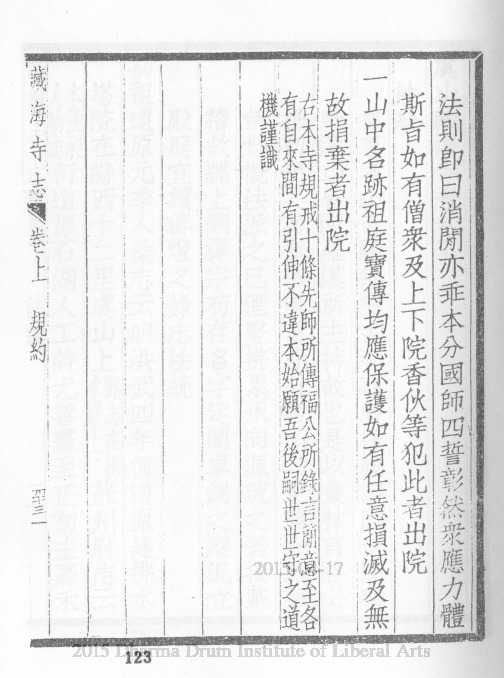 法則即曰消閒亦乖本分國師四誓彰然衆應力體
斯旨如有僧衆及上下院香伙等犯此者出院
一山中名跡祖庭寶傳均應保護如有任意損滅及無
故捐棄者出院
右本寺規戒十條先師所傳福公所錄言簡意至各
有自來間有引伸不違本始願吾後嗣世世守之道
機謹識
藏海寺志 卷上 規約
123
2015 Dharma Drum Institute of Liberal Arts